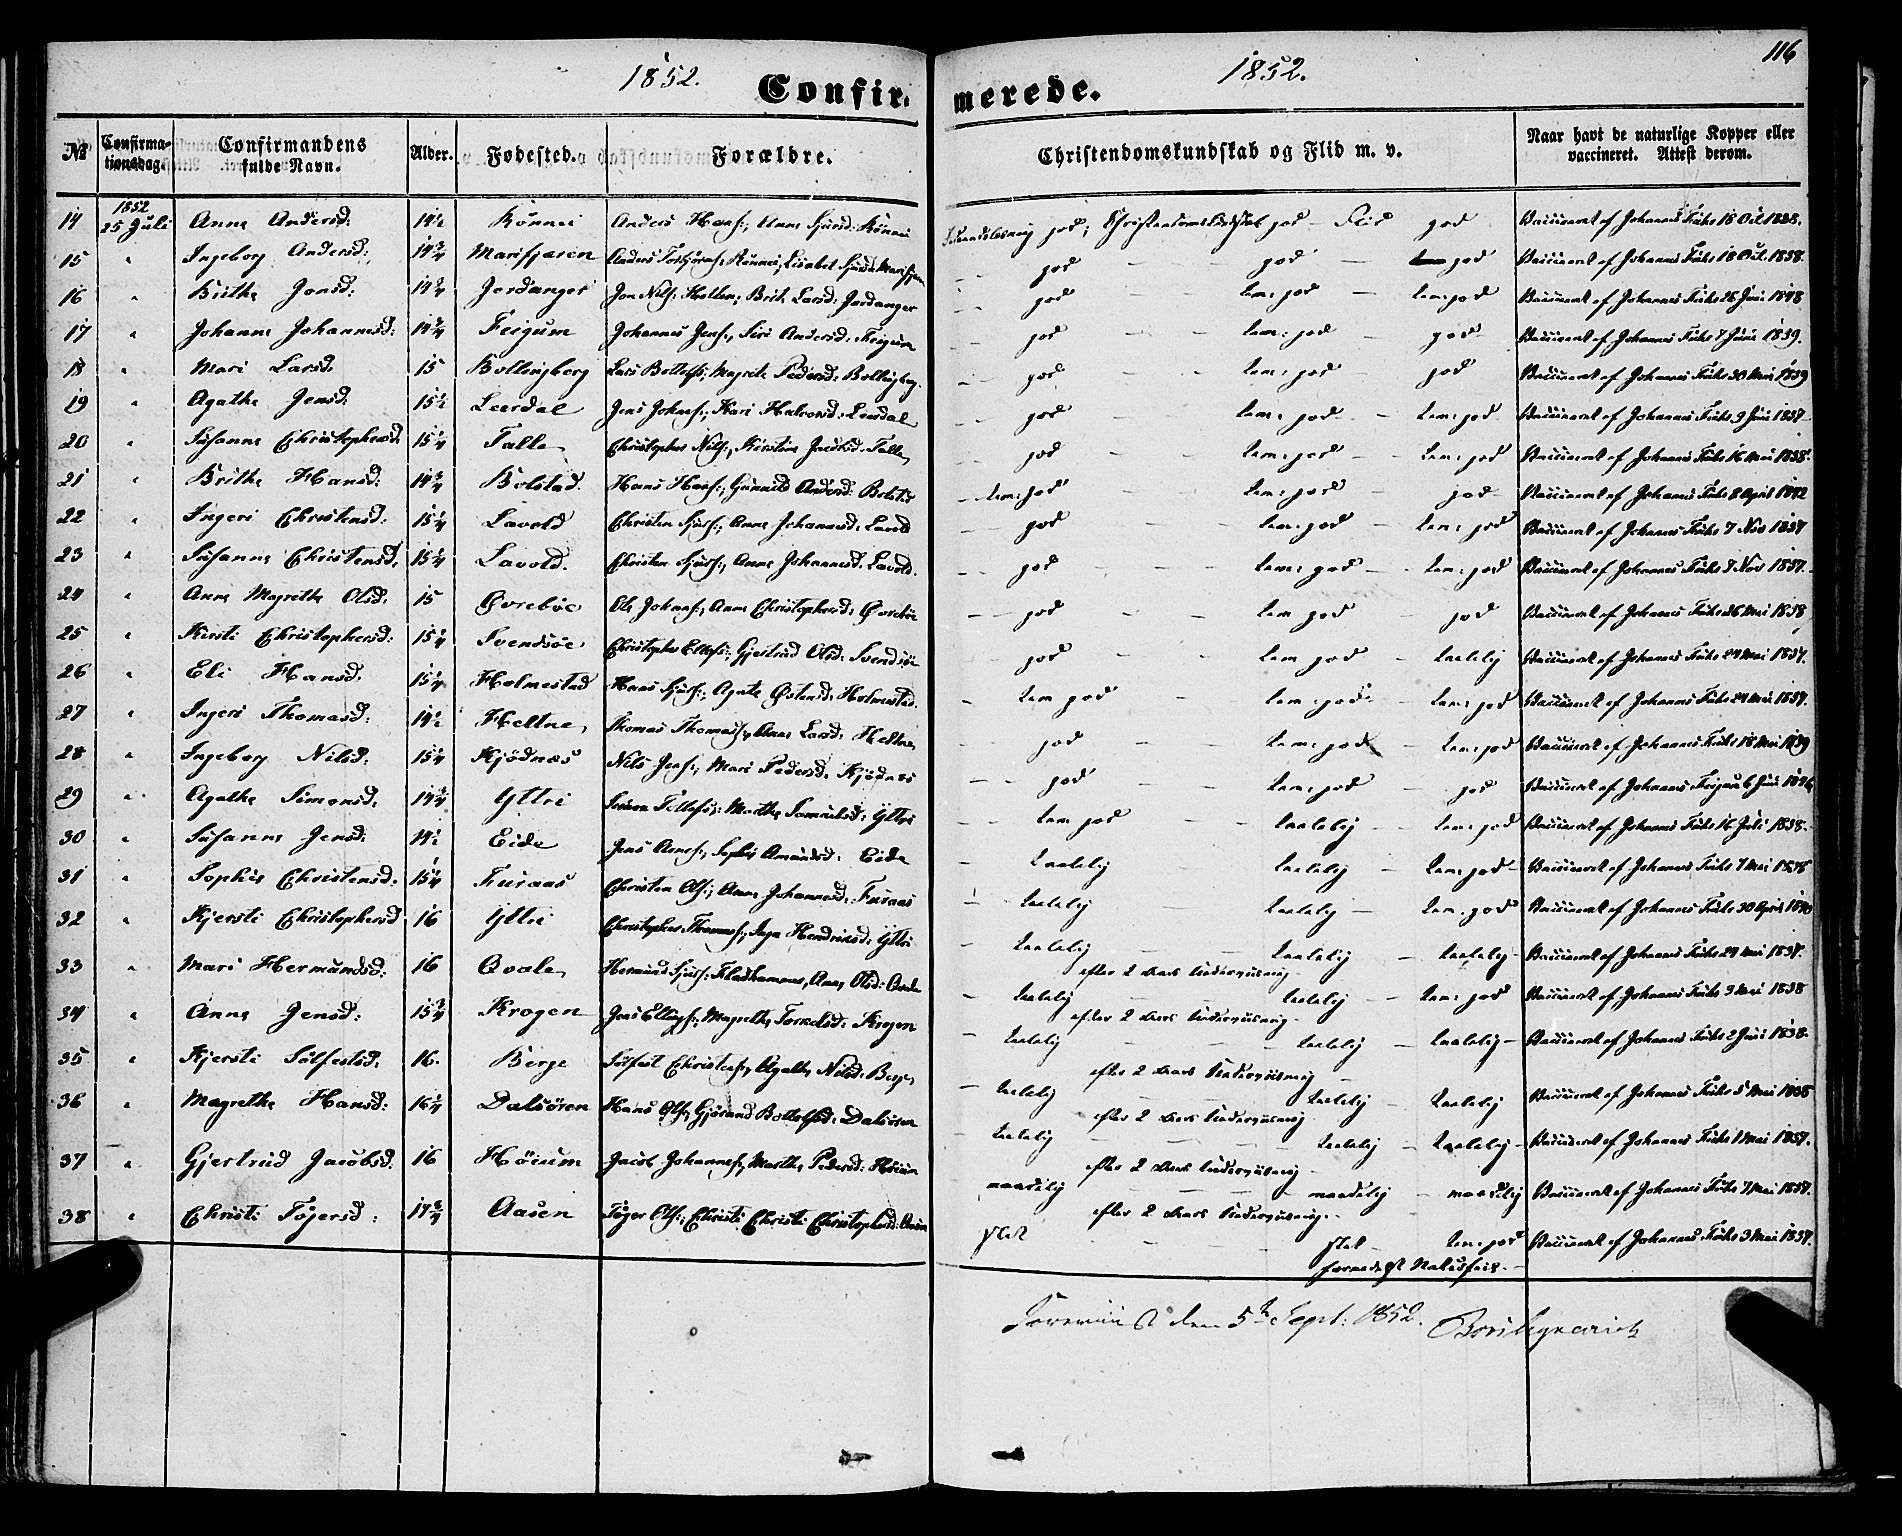 1852. Confirmerede. 1852. 116
№ Confirmationsdag. Confirmandens fulde Navn. Alder. Fødested. Forældre. Christendomskundskab og Flid m. v. Naar havt de naturlige Kopper eller vaccineret. Attest derom.
14 1852 25 Juli Anne Andersd: 14½ Rönnei Anders Hansf:, Anne Sjursd: Rönnei god; Christendomskundskab god - Flid god Vaccineret af Johannes Fuhr 18 Oct 1838.
15 " Ingeborg Andersd: 14¾ Marifjæren Lisabet Sjursd: Marifjæren god god god Vaccineret af Johannes Fuhr 18 Oct. 1838.
16 " Brithe Jonsd: 14¾ Jordanger Jon Nilsf: Brit. Larsd: Jordanger god tem: god tem: god Vaccineret af Johannes Fuhr 26 Juni 1848
17 " Johanne Johannesd: 14¾ Feigum Johannes Jensf:, Siri Andersd: Feigum god tem: god god Vaccineret af Johannes Fuhr 7 Juni 1839.
18 " Mari Larsd: 15 Bollingberg Lars Botolfs:, Magrete Pedersd: Bollingberg. god tem: god god Vaccineret af Johannes Fuhr 30 Mai 1839
19 " Agathe Jensd: 15½ Leerdal Jens Johnsf:, Kari Halvorsd: Leerdal god tem: god - tem: god Vaccineret af Johannes Fuhr 9 Juni 1837
20 " Susanne Christophersd: 15¼ Talle Christopher Nilsf:, Kirstine Jacobsd: Talle god tem: god - tem: god Vaccineret af Johannes Fuhr 16 Mai 1838
21 " Brithe Hansd: 14¾ Bolstad. Hans Hansf:, Gunnild Andersd: Bolstad tem: god tem: god god Vaccineret af Johannes Fuhr 8 April 1842
22 " Ingeri Christensd: 15¼ Lavold Christen Sjursf:, Anne Johannesd: Lavold god tem: god tem: god Vaccineret af Johannes Fuhr 7 Nov 1837
23 " Susanne Christensd: 15¼ Lavold. Christen Sjursf:, Anne Johannesd: Lavold. god tem: god tem: god Vaccineret af Johannes Fuhr 7 Nov 1837.
24 " Anne Magrethe Olsd: 15 Øvrebøe Ole Johnsf:, Anne Christophersd: Øvrebøe god tem god god Vaccineret af Johannes Fuhr 26 Mai 1838
25 " Kirsti Christophersd: 15¼ Svendsøe Christopher Ellefs:, Gjertrud Olsd: Svendsøe god tem god - taalelig Vaccineret af Johannes Fuhr 24 Mai 1837.
26 " Eli Hansd: 15¼ Holmestad Hans Sjursf:, Agate Østensd: Holmestad tem god tem: god tem: god Vaccineret af Johannes Fuhr 24 Mai 1837.
27 " Ingeri Thomasd: 14½ Heltne Thomas Thomasf:, Anne Larsd: Heltne god tem: god - tem: god Vaccineret af Johannes Fuhr 18 Mai 1839
28 " Ingeborg Nilsd: 15¼ Kjödnæs Nils Jensf:, Mari Pedersd: Kjödnæs god tem: god god Vaccineret af Johannes Feigum 6 Juni 1846
29 " Agathe Simonsd: 14¾ Yttri Simon Tollefs:, Marthe Samuelsd: Yttri tem god taalelig - tem: god Vaccineret af Johannes Fuhr 16 Juli 1838.
30 " Susanne Jensd: 14½ Eide Jens Arnesf:, Sophie Amundsd: Eide taalelig taalelig tem: god Vaccineret af Johannes Fuhr 7 Mai 1838
31 " Sophie Christensd: 15¼ Furaas Christen Olsf:, Anne Johannesd: Furaas taalelig taalelig - tem. god Vaccineret af Johannes Fuhr 30 April 1840
32 " Kjersti Christophersd 16 Yttri Christopher Thomasf:, Inga Hendriksd: Yttri taalelig taalelig - taalelig Vaccineret af Johannes Fuhr 24 Mai 1837.
efter 2 Aars Undervisning
33 " Mari Hermundsd: 16 Qvale Hermund Sjursf: Fladhammer, Anne Olsd: Qvale taalelig taalelig - tem: god Vaccineret af Johannes Fuhr 3 Mai 1838
efter 2 Aars Undervisning
34 " Anne Jensd: 15¾ Krogen Jens Ellingsf:, Magrethe Torkelsd: Krogen taalelig taalelig - taalelig - Vaccineret af Johannes Fuhr 2 Juni 1838.
efter 2 Aars Undervisning
35 " Kjersti Solfestsd: 16. Berge Solfest Christensf:, Agathe Nilsd: Berge taalelig taalelig taalelig Vaccineret af Johannes Fuhr 5 Mai 1838
efter 2 Aars Undervisning
36 " Magrethe Hansd: 16¼ Dalsören Hans Olsf:, Gjörand Botolfsd: Dalsören taalelig taalelig - taalelig - Vaccineret af Johannes Fuhr 1 Mai 1837.
efter 2 Aars Undervisning
37 " Gjertrud Jacobsd: 16 Höium Jacob Johannesf:, Marthe Pedersd: Höium maadelig maadelig - maadelig Vaccineret af Johannes Fuhr 7 Mai 1837.
efter 2 Aars Undervisning
38 " Christi Töjersd: 17¾ Aasen Töger Olsf:, Christi Christi Christophersd: Aasen slet slet tem: god Vaccineret af Johannes Fuhr 3 Mai 1837.
formedelst Natursfeil.
den 5te Sept: 1852.